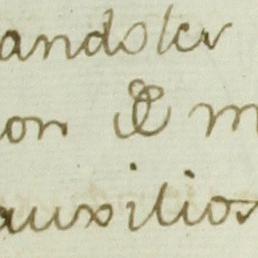 andoles
on & m
auxilios